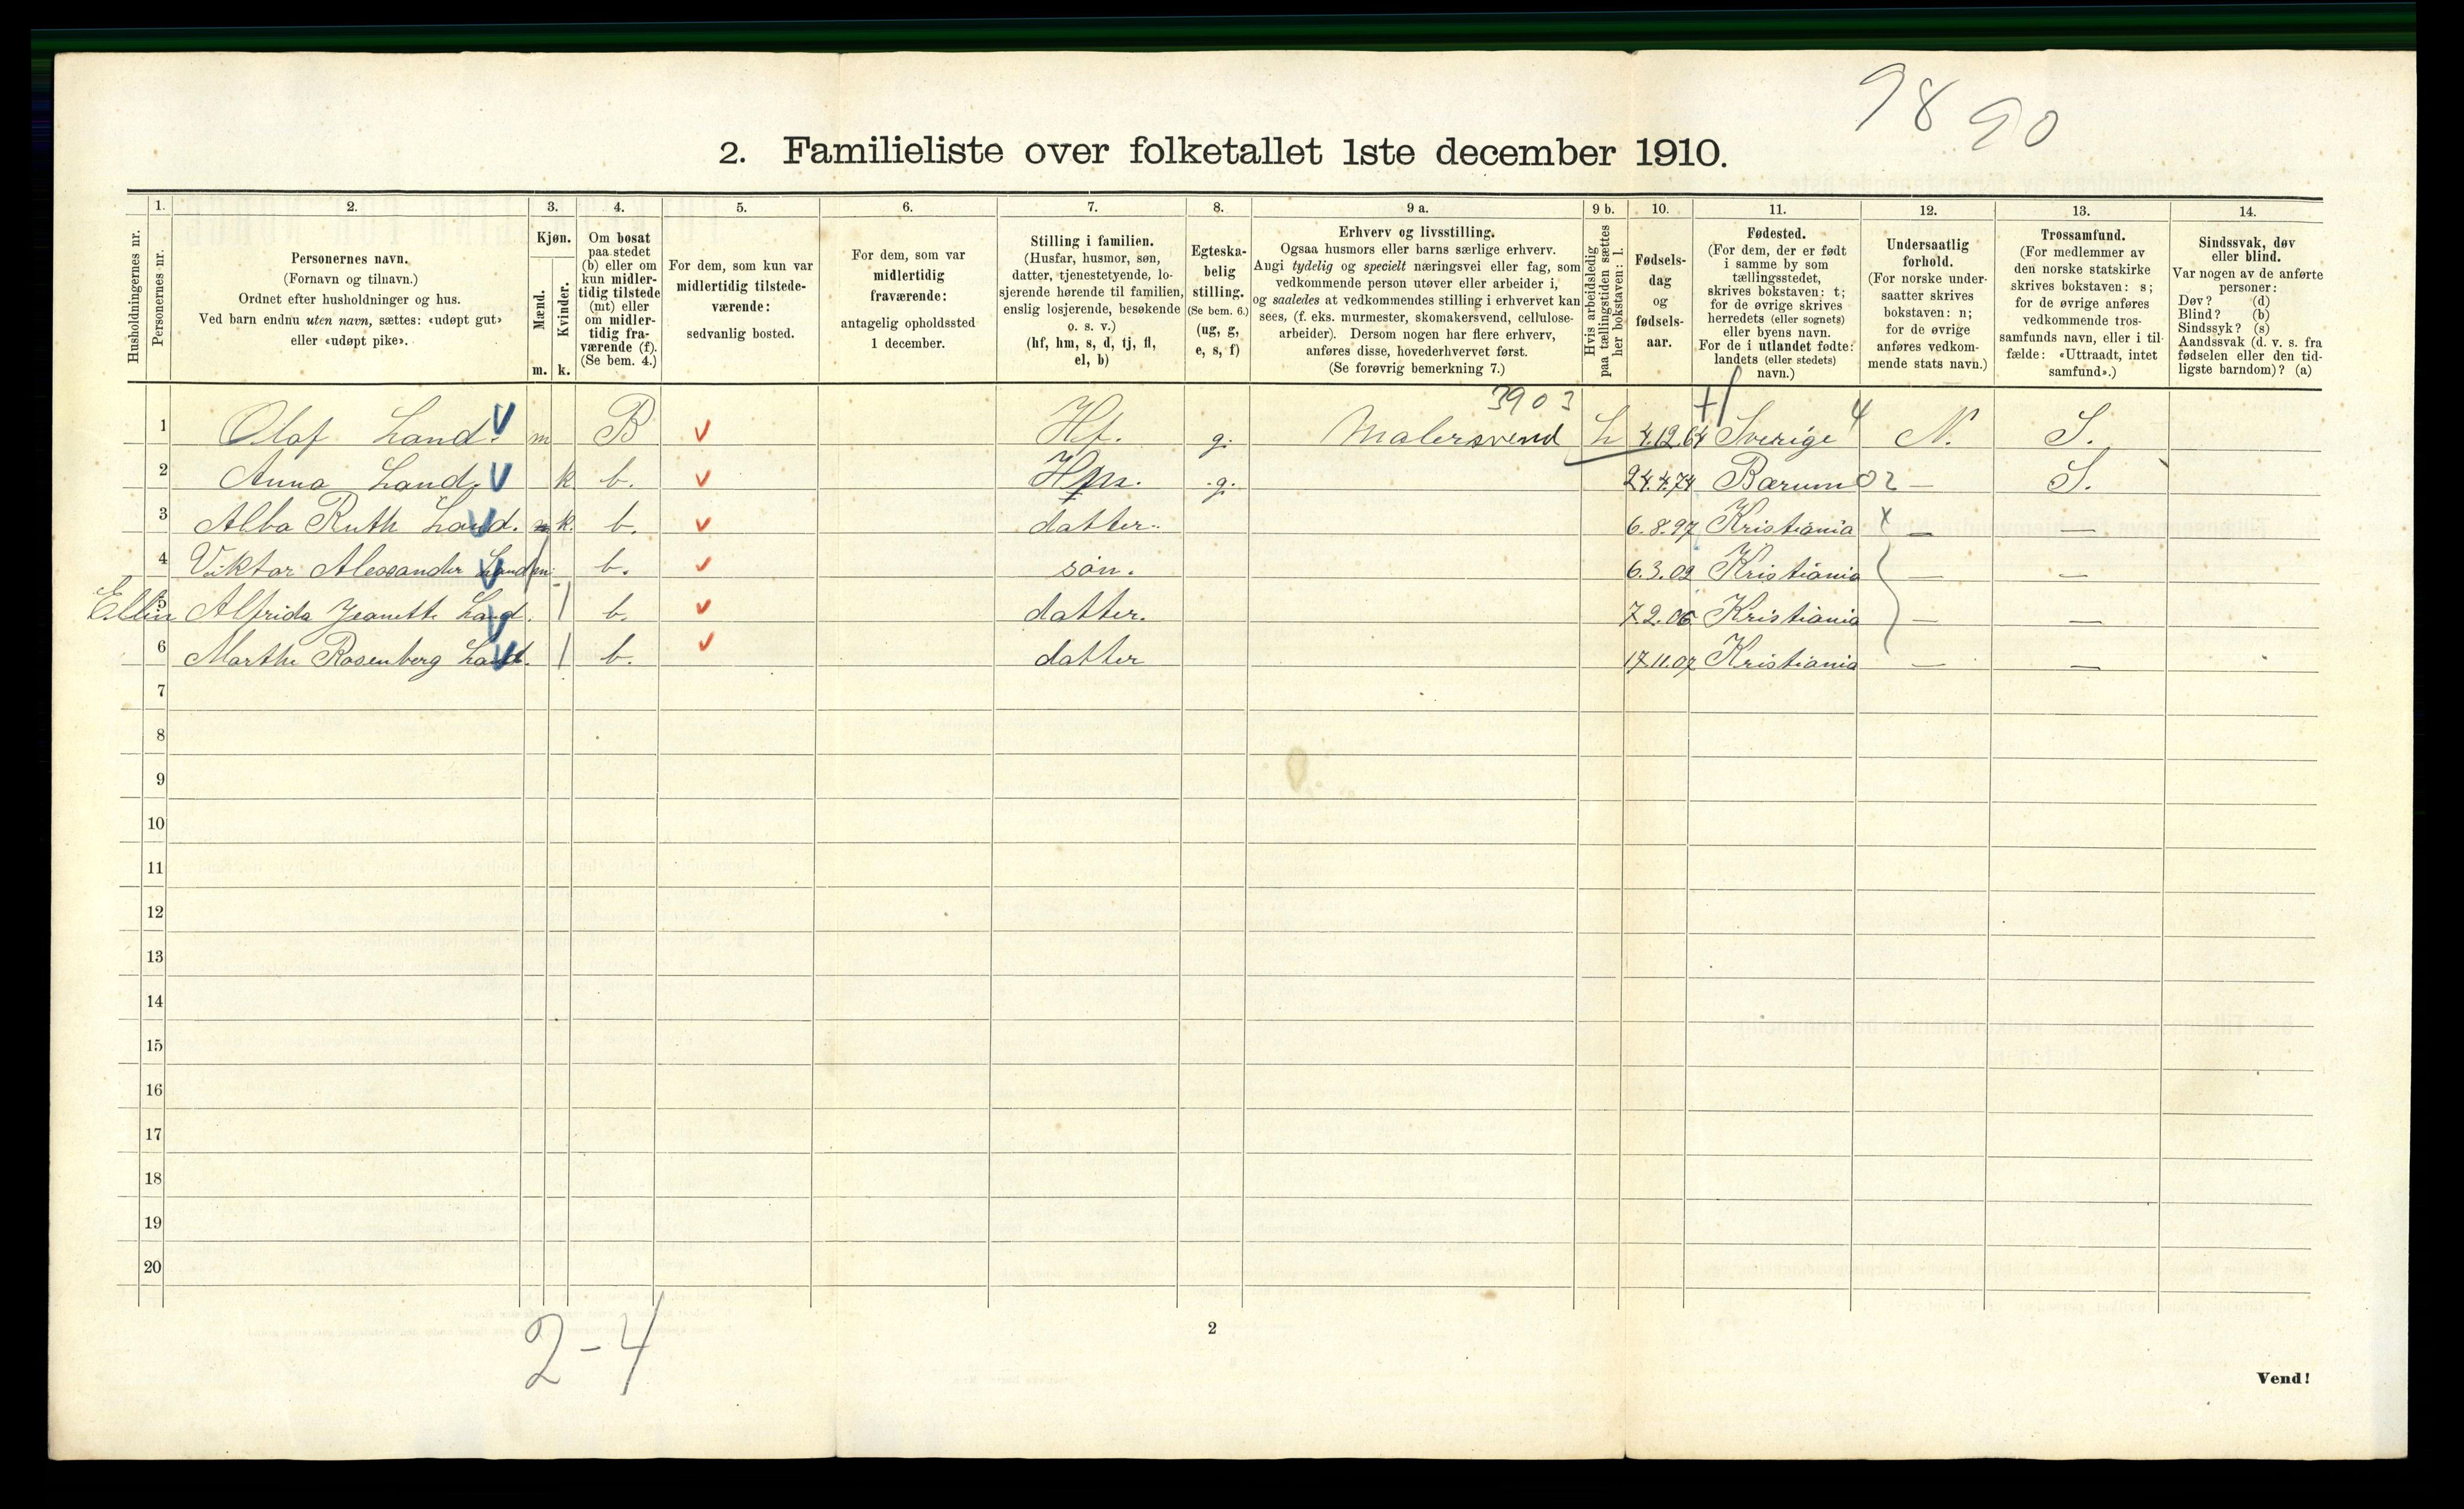 9890
2. Familieliste over folketallet 1ste december 1910.
Husholdningernes nr.
1.
Personernes nr.
2.
Personernes navn.
(Fornavn og tilnavn.)
Ordnet efter husholdninger og hus.
Ved barn endnu uten navn, sættes: «udøpt gut»
eller «udøpt pike».
3.
Kjøn.
Mænd.
Kvinder.
m.
k.
4.
Om bosat
paa stedet
(b) eller om
kun midler-
tidig tilstede
(mt) eller
om midler-
tidig fra-
værende (f).
(Se bem. 4.)
5.
For dem, som kun var
midlertidig tilstede-
værende:
sedvanlig bosted.
6.
For dem, som var
midlertidig
fraværende:
antagelig opholdssted
1 december.
7.
Stilling i familien.
(Husfar, husmor, søn,
datter, tjenestetyende, lo-
sjerende hørende til familien,
enslig losjerende, besøkende
o. s. v.)
(hf, hm, s, d, tj, fl,
el, b)
8.
Egteska-
belig
stilling.
(Se bem. 6.)
(ug, g,
e, s, f)
9 a.
Erhverv og livsstilling.
Ogsaa husmors eller barns særlige erhverv.
Angi tydelig og specielt næringsvei eller fag, som
vedkommende person utøver eller arbeider i,
og saaledes at vedkommendes stilling i erhvervet kan
sees, (f. eks. murmester, skomakersvend, cellulose-
arbeider). Dersom nogen har flere erhverv,
anføres disse, hovederhvervet først.
(Se forøvrig bemerkning 7.)
9 b.
Hvis arbeidsledig
paa tællingstiden sættes
her bokstaven: l.
10.
Fødsels-
dag
og
fødsels-
aar.
11.
Fødested.
(For dem, der er født
i samme by som
tællingsstedet,
skrives bokstaven: t;
for de øvrige skrives
herredets (eller sognets)
eller byens navn.
For de i utlandet fødte:
landets (eller stedets)
navn.)
12.
Undersaatlig
forhold.
(For norske under-
saatter skrives
bokstaven: n;
for de øvrige
anføres vedkom-
mende stats navn.)
13.
Trossamfund.
(For medlemmer av
den norske statskirke
skrives bokstaven: s;
for de øvrige anføres
vedkommende tros-
samfunds navn, eller i til-
fælde: «Uttraadt, intet
samfund».)
14.
Sindssvak, døv
eller blind.
Var nogen av de anførte
personer:
Døv? (d)
Blind? (b)
Sindssyk? (s)
Aandssvak (d. v. s. fra
fødselen eller den tid-
ligste barndom)? (a)
3903
1 Olaf Land. m B Hf. g. Malersvend L 4.12.64 Sverige 4 N. S.
2 Anna Land. k b. g. 24.4.74 Bærum 02 — S.
3 Alba Ruth Land. k. b. datter. 6.8.97 Kristiania x — —
4 Viktor Alexander Land m. b. søn. 6.3.02 Kristiania — —
5 Ellin Alfrida Jeanette Land. / b. datter. 7.2.06 Kristiania — —
6 Marthe Rosenberg Land. / b. datter 17.11.07 Kristiania — —
7
8
9
10
11
12
13
14
15
16
17
18
19
20
2-4
2
Vend!